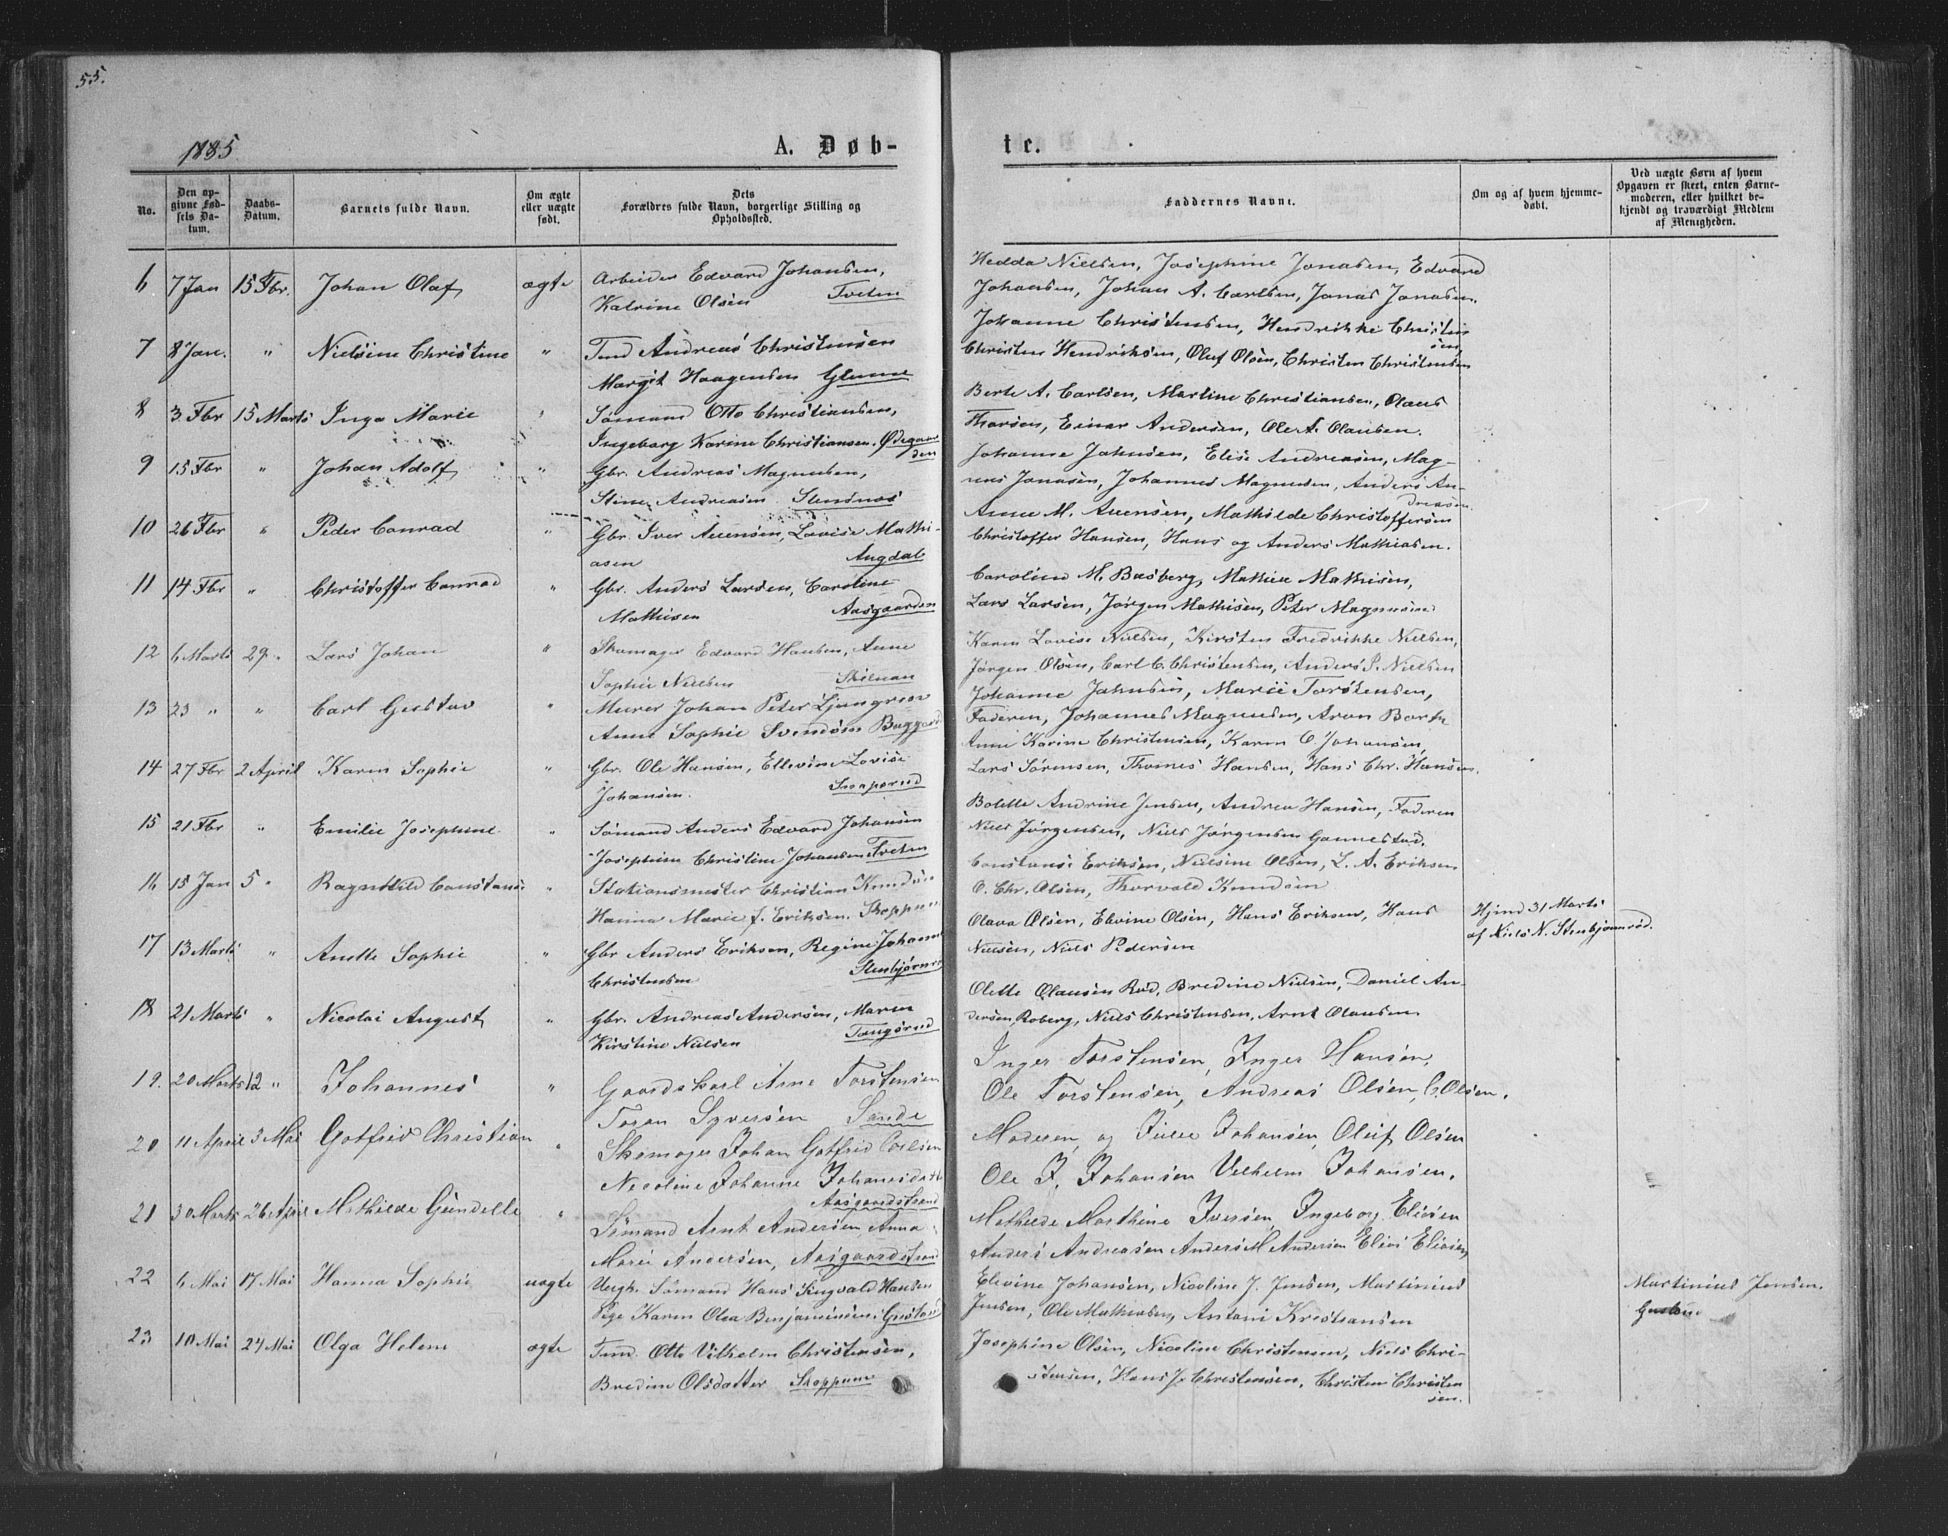 55.
1885
A. Døb-
te.
No.
Den op-
givne Fød-
sels Da-
tum.
Daabs-
Datum.
Barnets fulde Navn.
Om ægte
eller uægte
født.
Dets
Forældres fulde Navn, borgerlige Stilling og
Opholdssted.
Faddernes Navne.
Om og af hvem hjemme-
døbt.
Ved uægte Børn af hvem
Opgaven er skeet, enten Barne-
moderen, eller hvilket be-
kjendt og troværdigt Medlem
af Menigheden.
6 7 Jan 15 Fbr. Johan Olaf ægte Arbeider Edvard Johansen,
Katrine Olsen Tveten
Hedda Nielsen, Josephine Jonasen, Edvard
Johansen, Johan A. Carlsen, Jonas Jonasen.
7 8 Jan. " Nielsine Christine " Tmd Andreas Christensen
Margit Haagensen Glenne
Johanne Christensen, Hendrikke Christen
sen,
Christen Hendriksen, Oluf Olsen, Christen Christensen
8 3 Fbr 15 Marts Inga Marie " Sømand Otto Christiansen,
Ingeborg Karine Christiansen. Ødegaar
den
Berte A. Carlsen, Martine Christiansen, Olaus
Thorsen, Einar Andersen, Ole A. Olausen.
9 15 Fbr " Johan Adolf " Gbr. Andreas Magnusen,
Stine Andreasen Stensnæs
Johanne Johnsen, Elise Andreasen, Mag-
nus Jonasen, Johannes Magnusen, Anders An-
dreasen
10 26 Fbr " Peder Conrad " Gbr. Iver Auensen, Lovise Mathi-
asen Augdal
Anne M. Auensen, Mathilde Christoffersen
Christoffer Hansen, Hans og Anders Mathiasen.
11 14 Fbr " Christoffer Conrad " Gbr. Anders Larsen, Caroline
Mathisen Aasgaarden
Caroline M. Basberg, Mathea Mathisen,
Lars Larsen, Jørgen Mathisen, Peter Magnusen
12 6 Marts 29 " Lars Johan " Skomager Edvard Hansen, Anne
Sophie Nielsen
Karen Lovise Nielsen, Kirsten Fredrikke Nielsen,
Jørgen Olsen, Carl C. Christensen, Anders P. Nielsen
13 23 " " Carl Gustav " Murer Johan Peter Ljungren
Anne Sophie Svendsen
Johanne Johnsen, Marie Torstensen,
Faderen, Johannes Magnusen, Aron
14 27 Fbr 2 April Karen Sophie " Gbr. Ole Hansen, Ellevine Lovise
Johansen.
Anne Karine Christensen, Karen O. Johansen,
Lars Sørensen, Thomas Hansen, Hans Chr. Hansen.
15 21 Fbr " Emilie Josephine " Sømand Anders Edvard Johansen
Josephine Christine Johansen Tveten
Bolette Andrine Jensen, Andrea Hansen, Faderen
Niels Jørgensen, Niels Jørgensen Gannestad.
16 15 Jan 5 " Ragnhild Constanse " Stationsmester Christian Knudsen
Hanna Marie f. Eriksen. Skoppum
Constanse Eriksen, Nielsine Olsen, L. A. Eriksen
O. Chr. Olsen, Thorvald Knudsen
17 13 Marts " Anette Sophie " Gbr Anders Eriksen, Regine Johanne
Christensen Stenbjørnrød
Olava Olsen, Elevine Olsen, Hans Eriksen, Hans
Nielsen, Niels Pedersen
Hjmd 31 Marts
af Niels N. Stenbjørnrød.
18 21 Marts " Nicolai August " Gbr. Andreas Andersen, Maren
Kirstine Nielsen Tangsrud
Olette Olausen Rød, Bredine Nielsen, Daniel An-
dersen Roberg, Niels Christensen, Arnt Olausen
19. 20 Marts 12 " Johannes " Gaardskarl Arne Torstensen
Toran Syversen Sande
Inger Torstensen, Inger Hansen,
Ole Torstensen, Andreas Olsen, C. Olsen.
20 11 April 3 Mai Gotfrid Christian " Skomager Johan Gotfrid Carlsen
Nicoline Johanne Johansdatter
Aasgaardstrand
Moderen, og Julie Johansen, Oluf Olsen
Ole J. Johansen Velhelm Johansen.
21 30 Marts 26 April Mathilde Gundelle " Sømand Arnt Andersen, Anna
Marie Andersen, Aasgaardstrand
Mathilde Marthine Iversen Ingeborg Eliasen
Anders Andreasen Anders M Andersen Elias Eliasen
22 6 Mai 17 Mai Hanna Sophie uægte Ungk. Sømand Hans Singvald Hansen
Pige Karen Olea Benjaminsen.
Elevine Johansen, Nicoline J. Jensen, Martinius
Jensen, Ole Mathiasen, Antoni Kristiansen
Martinius Jensen.
23 10 Mai 24 Mai Olga Helene ægte Tmd. Otto Vilhelm Christensen,
Bredine Olsdatter Skoppum
Josephine Olsen, Nicoline Christensen, Niels Chri-
stensen, Hans J. Christensen, Christen Christen
sen.